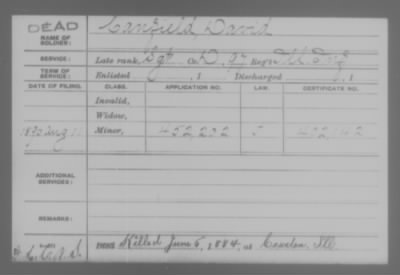 DEAD Canfield David
NAME OF SOLDIER:
SERVICE: Late rank, Sgt Co. D, 97 Reg't Ill Inf
TERM OF SERVICE: Enlisted , 1 Discharged , 1
DATE OF FILING. CLASS. APPLICATION NO. LAW. CERTIFICATE NO.
Invalid,
Widow,
1890 Aug 11 Minor, 452,232
ADDITIONAL SERVICES:
REMARKS:
Killed June 5, 1884, at Ill.